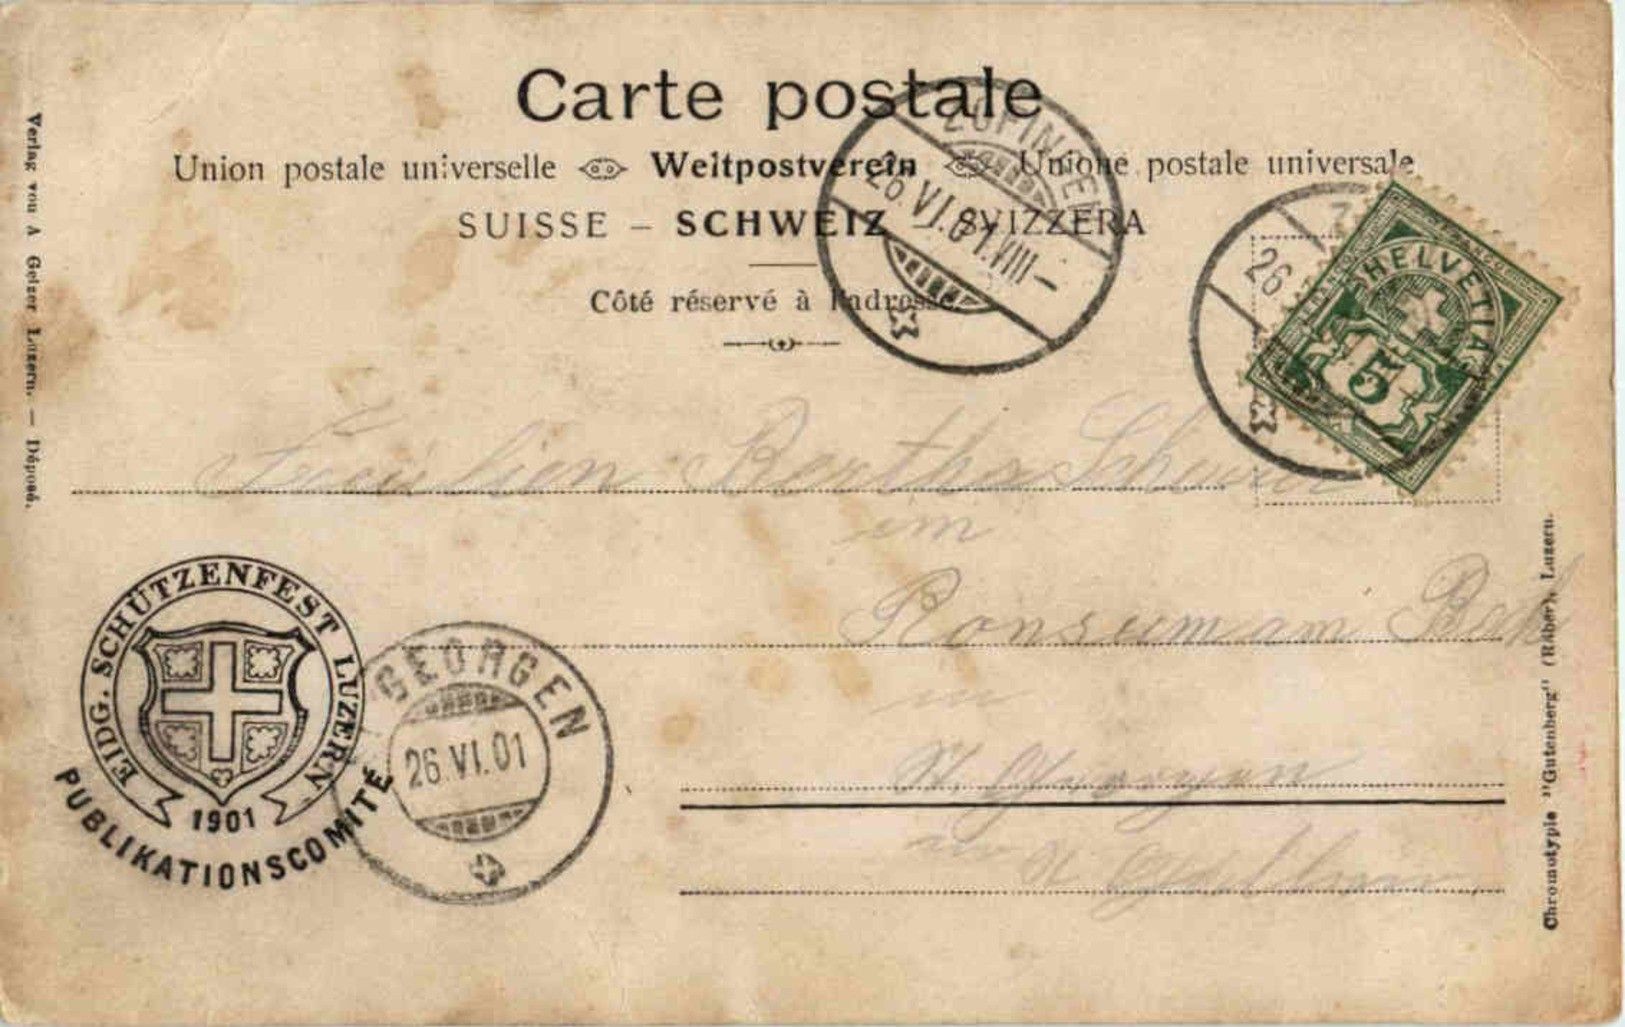 Carte postale
Union postale universelle Weltpostverein Unione postale universale
SUISSE – SCHWEIZ – SVIZZERA
Côté réservé à l'adresse.
ZOFINGEN
26.VI.01.VIII–
26
HELVETIA
5
Verlag von A Geizer Luzern. — Déposé.
Bertha
im
Konsum am
in
St. Georgen
EIDG. SCHÜTZENFEST LUZERN
1901
PUBLIKATIONSCOMITÉ
GEORGEN
26.VI.01
Chromotypie "Gutenberg" (Räber), Luzern.